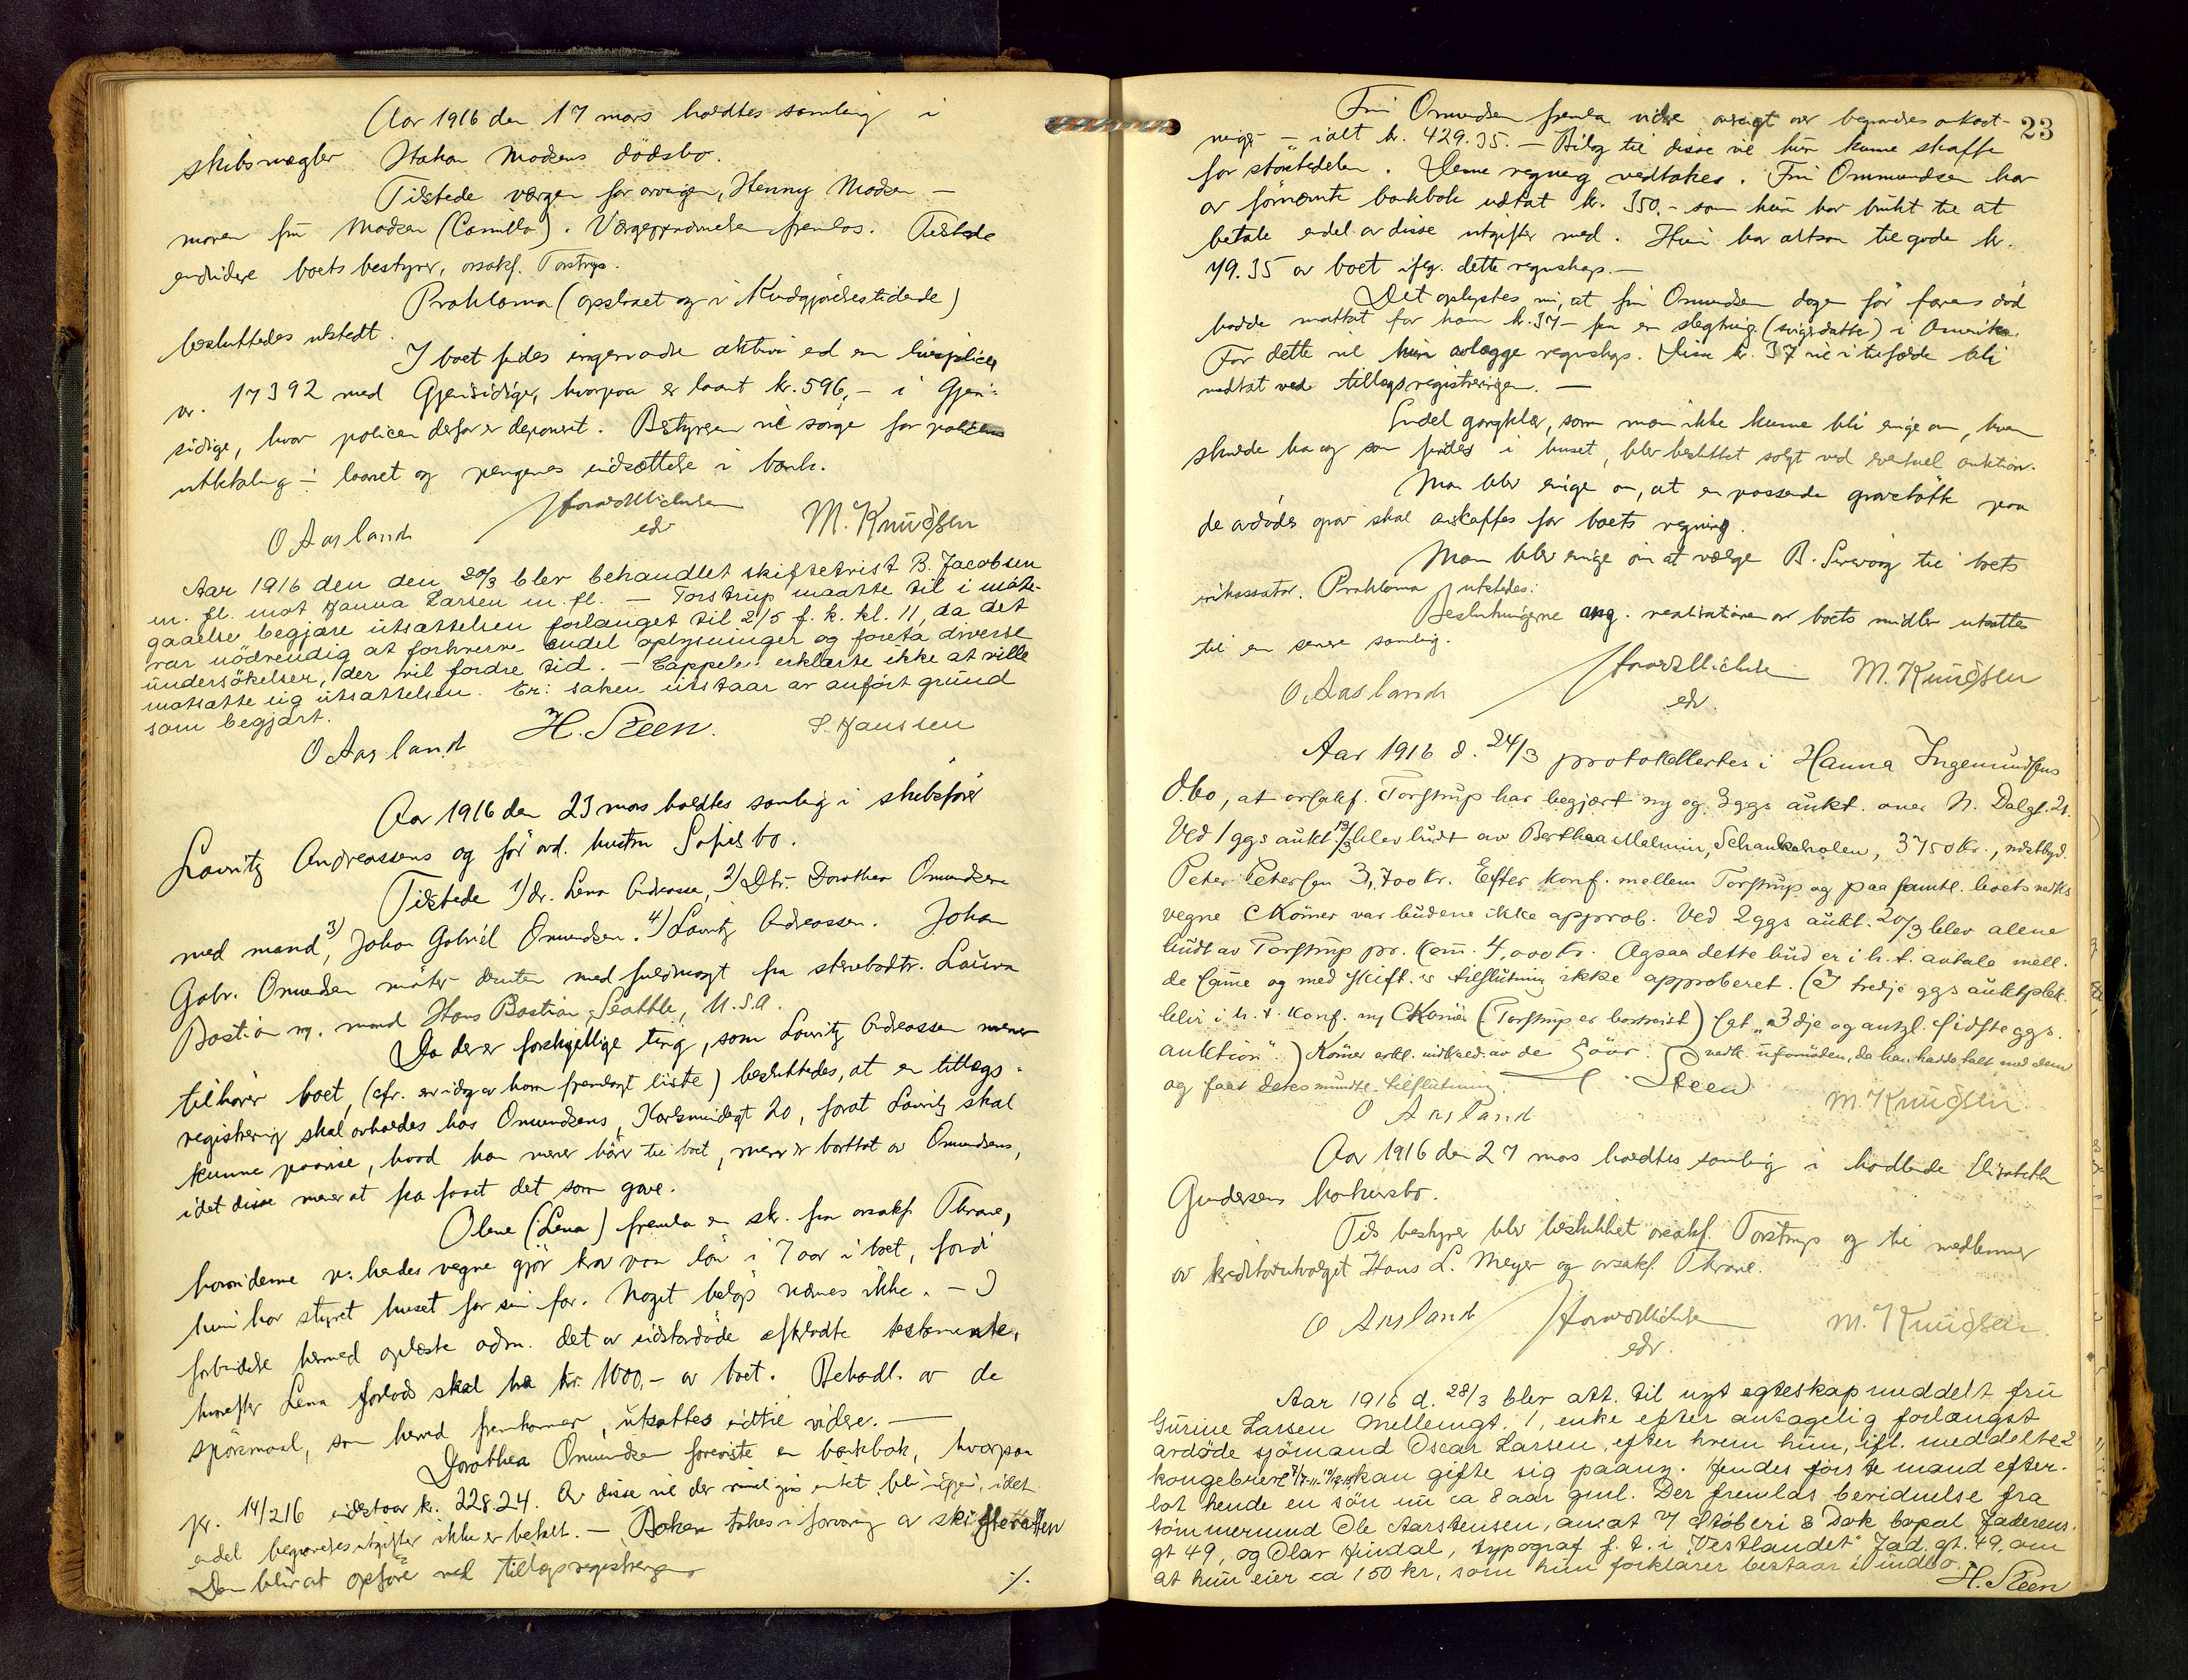 Aar 1916 den 17 mars holdtes samling i
skibsmægler Hakon Madsens dödsbo.
Tilstede værgen for arvingen, Henny Madsen —
moren fru Madsen (Camilla). Værgeopnævnelsen fremlas. Tilstede
endvidere boets bestyrer, orsakf. Torstrup.
Proklama (opslaaet og i Kundgjörelsestidende)
besluttedes utstedt.
I boet findes ingen andre aktiva end en livspolice
nr. 17392 med Gjensidige, hvorpaa er laant kr. 596,- i Gjen-
sidige, hvor policen derfor er deponert. Bestyreren vil sörge for policens
utbetaling ÷ laanet og pengenes indsættelse i bank.
O Aasland
edv
M. Knudsen
Aar 1916 den den 20/3 blev behandlet skiftetvist B. Jacobsen
m. fl. mot Hanna Larsen m. fl. — Torstrup maatte til i möte-
gaaelse begjære utsættelsen forlænget til 2/5 f. k. kl. 11, da det
var nödvendig at forhverve endel oplysninger og foreta diverse
undersökelser, der vil fordre tid. — Cappelen erklærte ikke at ville
motsætte sig utsættelsen. Er: saken utstaar av anfört grund
som begjært.
O Aasland H. Steen. S. Hanssen
Aar 1916 den 23 mars holdtes samling i skibsförer
Lauritz Andreassens og för avd. hustru Sofies bo.
Tilstede 1) dr. Lena Andreassen, 2) Dtr. Dorothea Omundsen
med mand, 3) Johan Gabriel Omundsen. 4) Lauritz Andreassen. Johan
Gabr. Omundsen möter desuten med fuldmagt fra stervbodtr. Laura
Bastian og mand Hans Bastian, Seattle, U.S.A.
Da der er forskjellige ting, som Lauritz Andreassen mener
tilhörer boet, (cfr. en idag av ham fremlagt liste) besluttedes, at en tillægs-
registrering skal avholdes hos Omundsens, Karlsmindegt 20, forat Lauritz skal
kunne paavise, hvad han mener hörer til boet, men er borttat av Omundsens,
idet disse mener at ha faaet det som gave.
Olene (Lena) fremla en skr. fra orsakf. Thrane,
hvori denne paa hendes vegne gjör krav paa lön i 7 aar i boet, fordi
hun har styret huset for sin far. Noget belöp nævnes ikke. — I
forbindelse hermed oplæste adm. det av sidstavdöde efterladte testamente,
hvorefter Lena forlods skal ha kr. 1000,- av boet. Behandl. av de
spörsmaal, som herved fremkommer, utsattes indtil videre. —
Dorothea Omundsen foreviste en bankbok, hvorpaa
pr. 14/2 16 indestaar kr. 228.24. Av disse vil der rimeligvis intet bli igjen, idet
endel begravelsesutgifter ikke er betalt. — Boken tages i forvaring av skifteretten
Den blir at opföre ved tillægsregistreringen
./.
23
Fru Omundsen fremla videre oversigt over begravelsesomkost-
ninger — ialt kr. 429.35. — Bilag til disse vil hun kunne skaffe
for störstedelen. Denne regning vedtakes. Fru Ommundsen har
av fornævnte bankbok uttat kr. 350.- som hun har brukt til at
betale endel av disse utgifter med. Hun har altsaa tilgode kr.
79.35 av boet ifög. dette regnskap. —
Det oplystes nu, at fru Omundsen dagen för farens död
hadde mottat for ham kr. 37 — fra en slegtning (svigerdatter) i Amerika.
For dette vil hun avlægge regnskap. Disse kr. 37 vil i tilfælde bli
medtat ved tillægsregistreringen. —
Endel gangklær, som man ikke kunne bli enige om, hvem
skulde ha og som findes i huset, blev besluttet solgt ved eventuel auktion.
Man blev enige om, at en passende gravstötte paa
de avdödes grav skal anskaffes for boets regning.
Man blev enige om at vælge B. Sørvaag til boets
inkassator. Proklama utstedes.
Beslutningerne ang. realisationen av boets midler utsættes
til en senere samling.
O. Aasland
edv.
M. Knudsen
Aar 1916 d. 24/3 protokollertes i Hanna Ingemundsens
d.bo, at orsakf. Torstrup har begjært ny og 3ggs aukt. over N. Dalgt. 21.
Ved 1 ggs aukt 13/3 blev budt av Berthea Malmin, Schankeholen, 3750 kr., næstbyd.
Peter Petersen 3,700 kr. Efter konf. mellem Torstrup og paa samtl. boets vedk.s
vegne C Kömer var budene ikke approb. Ved 2ggs aukt. 20/3 blev alene
budt av Torstrup pr. kom. 4,000 kr. Ogsaa dette bud er i h. t. avtale mell.
de samme og med skift.s tilslutning ikke approberet. (I tredje ggs auktplak.
blir i h. t. konf. m/ C Kömer (Torstrup er bortreist) sat "3dje og antgl. sidste ggs.
auktion".) Kömer erkl. indkald. av de övr. vedk. ufornöden, da han hadde talt med dem
og faat deres mundtl. tilslutning. Steen
O Aasland M Knudsen
Aar 1916 den 27 mars holdtes samling i handlende Elisabeth
Gundersens konkursbo.
Til bestyrer blev beskikket orsakf. Torstrup og til medlemmer
av kreditorutvalget Hans L. Meyer og orsakf. Thrane.
O Aasland
edv.
M. Knudsen
Aar 1916 d. 28/3 blev att. til nyt egteskap meddelt fru
Gurine Larsen Mellemgt. 1, enke efter antagelig forlængst
avdöde sjömand Oscar Larsen, efter hvem hun, ifl. meddelte 2
kongebrever kan gifte sig paany. Hendes förste mand efter-
lot hende en sön nu ca 8 aar gml. Der fremlas bevidnelse fra
tömmermand Ole Aarstensen, ansat v/ Stöberi & Dok bopal Jæderens-
gt 49, og Olav Hindal, typograf f. t. i "Vestlandet" Jæd. gt. 49, om
at hun eier ca 150 kr, som hun forklarer bestaar i indbo.
H. Steen